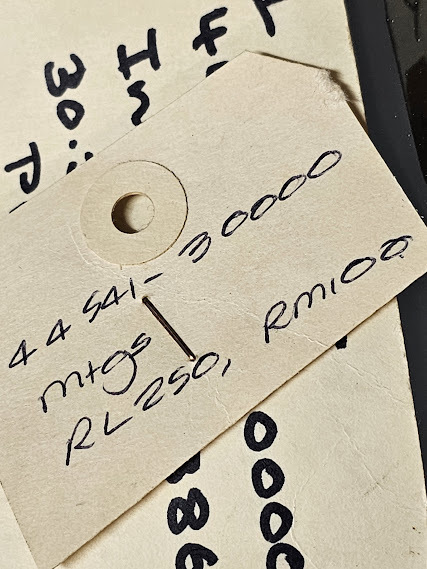 44541-30000
mtgs
RL250, RM100
30
0000
386